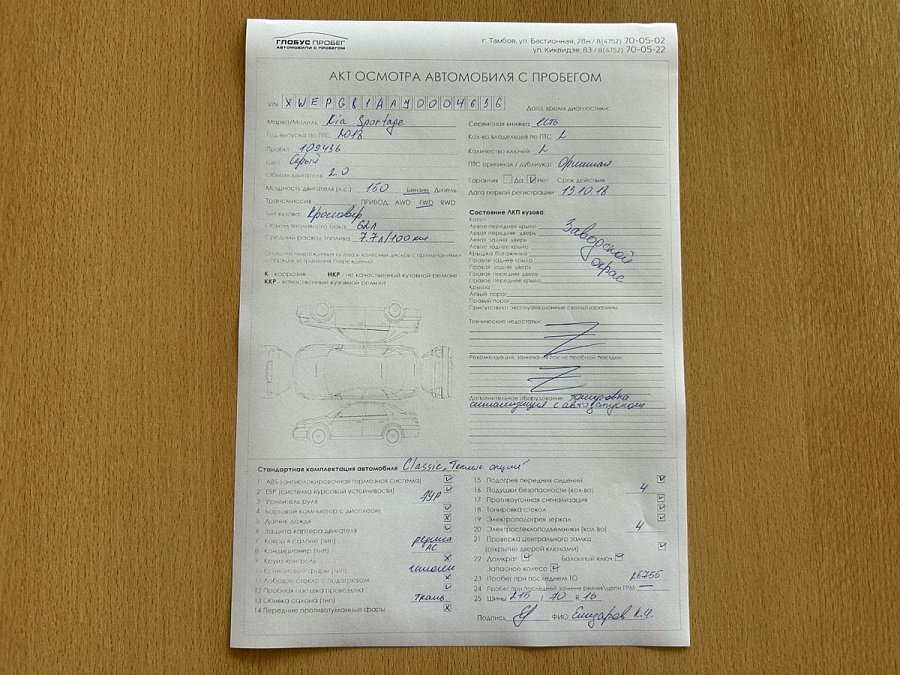 ГЛОБУС ПРОБЕГ
АВТОМОБИЛИ С ПРОБЕГОМ
г. Тамбов, ул. Бастионная, 28н / 8(4752) 70-05-02
ул. Киквидзе, 83 / 8(4752) 70-05-22
АКТ ОСМОТРА АВТОМОБИЛЯ С ПРОБЕГОМ
VIN XWEPG81AAJ0004636
Марка/Модель Kia Sportage
Год выпуска по ПТС 2018
Пробег 109436
Цвет Серый
Объем двигателя 2.0
Мощность двигателя (л.с.) 150 Бензин Дизель
Трансмиссия ПРИВОД: AWD FWD RWD
Тип кузова Кроссовер
Объем топливного бака 62л
Средний расход топлива 7.7л/100км
Опишите повреждения кузова и колесных дисков с примечаниями
о порядке устранения повреждений
К - коррозия НКР - не качественный кузовной ремонт
ККР - качественный кузовной ремонт
Дата, время диагностики:
Сервисная книжка есть
Кол-во владельцев по ПТС 1
Количество ключей 2
ПТС оригинал / дубликат Оригинал
Гарантия Да Нет Срок действия
Дата первой регистрации 13.10.18
Состояние ЛКП кузова:
Капот
Левое переднее крыло
Левая передняя дверь
Левая задняя дверь
Левое заднее крыло
Крышка багажника
Правое заднее крыло
Правая задняя дверь
Правая передняя дверь
Правое переднее крыло
Крыша
Левый порог
Правый порог
Заводской окрас
Присутствуют эксплуатационные сколы/царапины
Технические недостатки:
Рекомендации, замечания после пробной поездки:
Дополнительное оборудование: тонировка
сигнализация с автозапуском
Стандартная комплектация автомобиля Classic "Теплые опции"
1 ABS (антиблокировочная тормозная система)
2 ESP (система курсовой устойчивости)
3 Усилитель руля ЭУР
4 Бортовой компьютер с дисплеем
5 Датчик дождя
6 Защита картера двигателя
7 Ковры в салоне (тип) резина
8 Кондиционер (тип) AC
9 Круиз контроль
10 Ксеноновые фары (тип) галоген
11 Лобовое стекло с подогревом
12 Пробная поездка проведена
13 Обивка салона (тип) ткань
14 Передние противотуманные фары
15 Подогрев передних сидений
16 Подушки безопасности (кол-во) 4
17 Противоугонная сигнализация
18 Тонировка стекол
19 Электроподогрев зеркал
20 Электростеклоподъемники (кол во) 4
21 Проверка центрального замка
(открытие дверей ключами)
22 Домкрат Балонный ключ
Запасное колесо
23 Пробег при последнем ТО
24 Пробег при последней замене ремня/цепи ГРМ —
25 Шины 215 / 70 R 16
Подпись ФИО